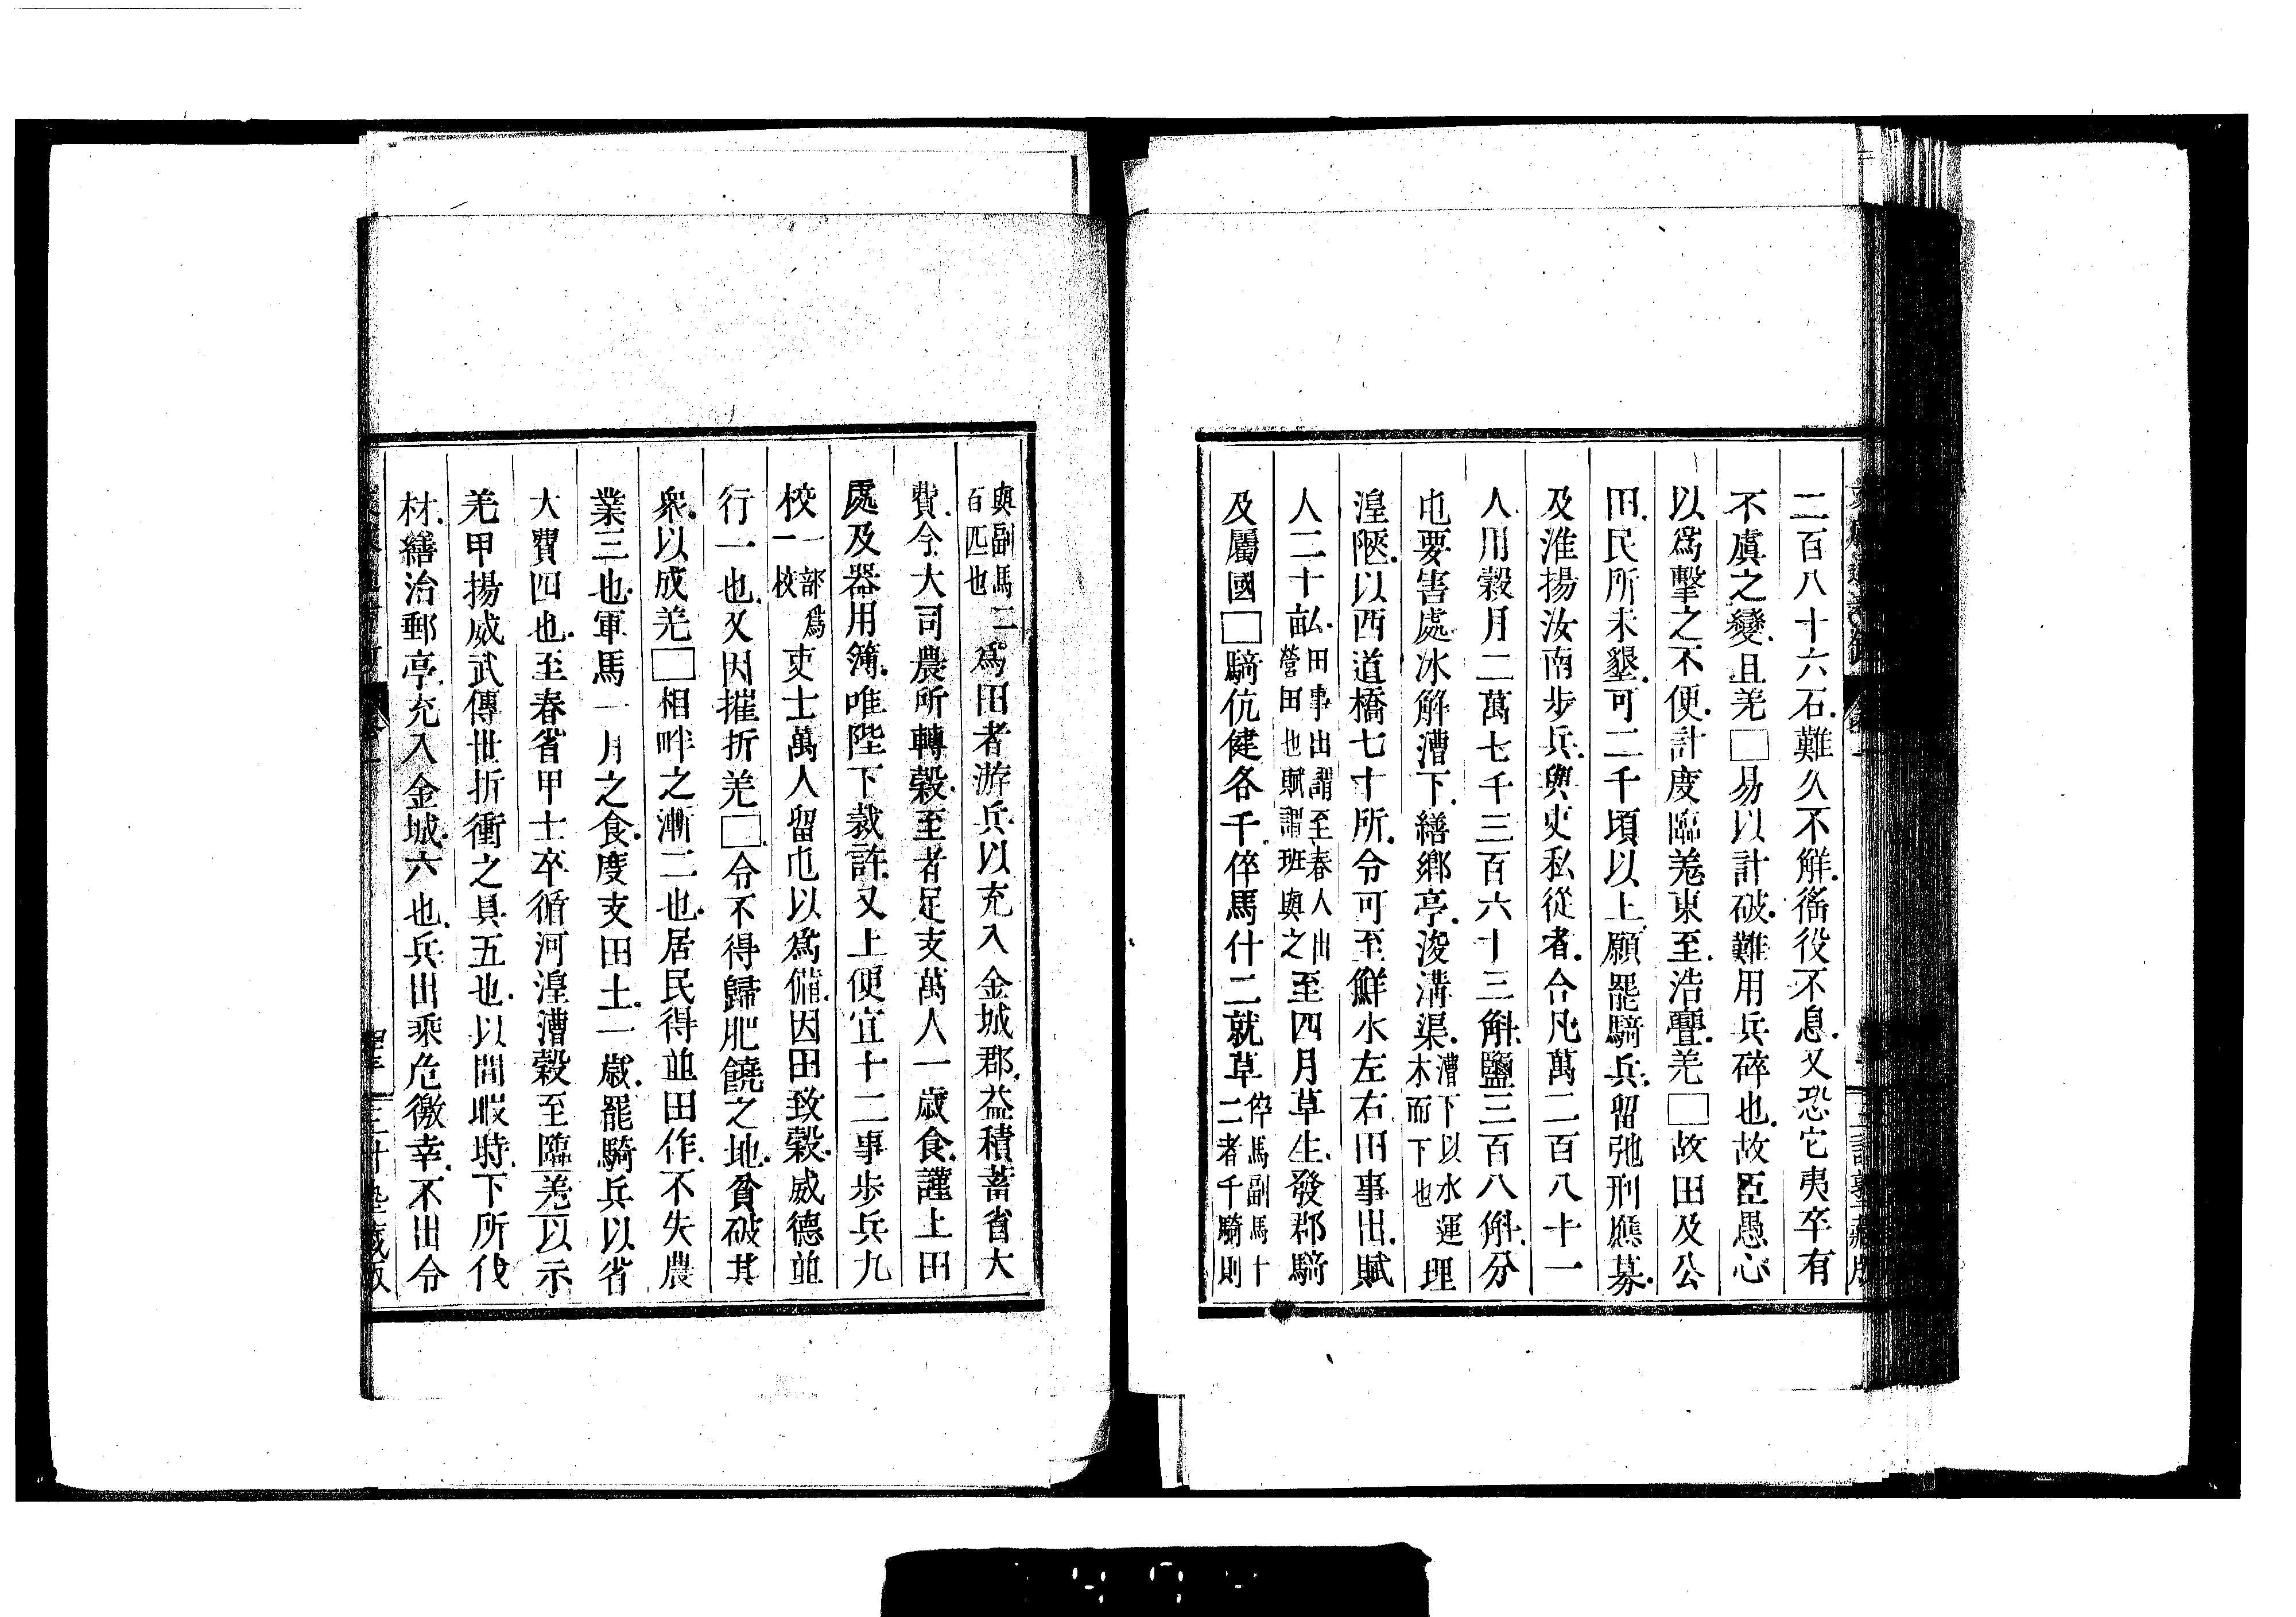 二百八十六石難久不解徭役不息又恐它夷卒有
不虞之變且羌□易以計破難用兵碎也故臣愚心
以爲擊之不便計度臨羌東至浩亹羌□故田及公
田民所未墾可二千頃以上願罷騎兵留弛刑應募
及淮揚汝南步兵與吏私從者合凡萬二百八十一
人用穀月二萬七千三百六十三斛鹽三百八斛分
屯要害處冰解漕下繕鄉亭浚溝渠漕下以水運木而下也理
湟陿以西道橋七十所令可至鮮水左右田事出賦
人二十畝田事出謂至春人出營田也賦謂班與之至四月草生發郡騎
及屬國□騎伉健各千倅馬什二就草倅馬副馬十二者千騎則
與副馬二百匹也爲田者游兵以充入金城郡益積蓄省大
費今大司農所轉穀至者足支萬人一歲食謹上田
處及器用簿唯陛下裁許又上便宜十二事步兵九
校一部爲一校吏士萬人留屯以爲備因田致穀威德並
行一也又因摧折羌□令不得歸肥饒之地貧破其
衆以成羌□相畔之漸二也居民得並田作不失農
業三也軍馬一月之食度支田土一歲罷騎兵以省
大費四也至春省甲士卒循河湟漕穀至臨羌以示
羌甲揚威武傳世折衝之具五也以閒暇時下所伐
材繕治郵亭充入金城六也兵出乘危徼幸不出令